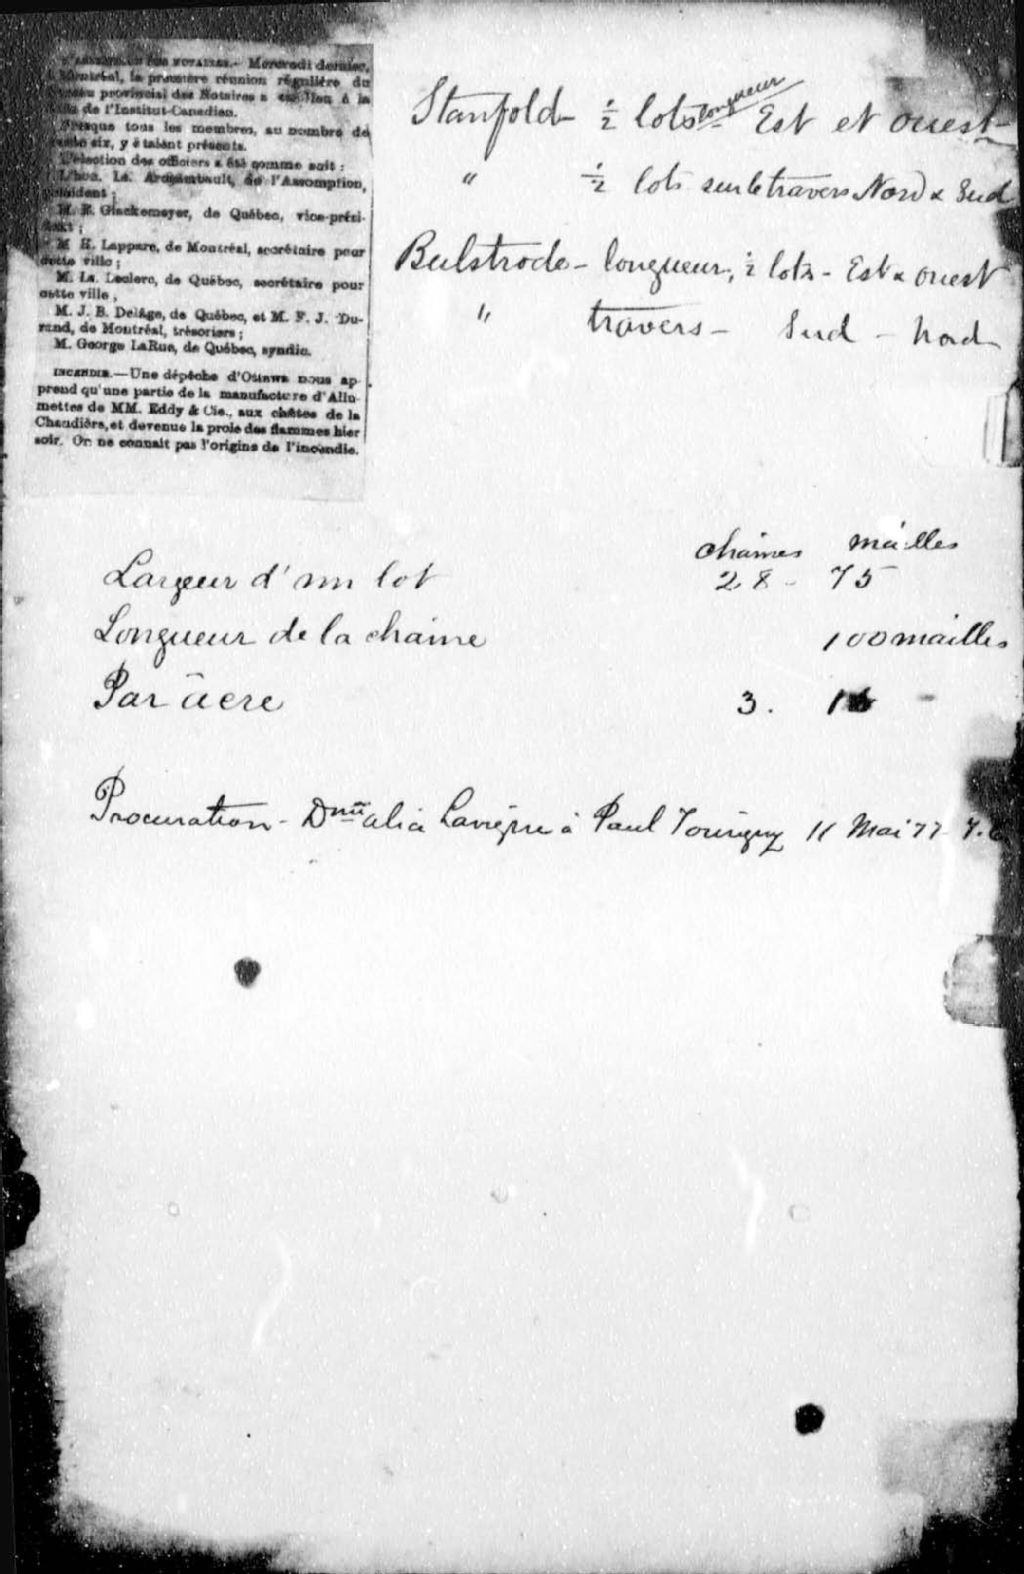 NOTAIRES.— Mercredi dernier,
Montréal, la première réunion régulière du
provincial des Notaires a eu lieu à la
de l'Institut-Canadien.
Presque tous les membres, au nombre de
six, y étaient présents.
L'élection des officiers a été comme suit :
L'hon. Ls. Archambault, de l'Assomption,
président ;
M. E. Glackemeyer, de Québec, vice-prési-
dent ;
M H. Lappare, de Montréal, secrétaire pour
cette ville ;
M. Ls. Leclerc, de Québec, secrétaire pour
cette ville,
M. J. B. Delâge, de Québec, et M. F. J. Du-
rand, de Montréal, trésoriers ;
M. George LaRue, de Québec, syndic.
INCENDIE.—Une dépêche d'Ottawa nous ap-
prend qu'une partie de la manufacture d'Allu-
mettes de MM. Eddy & Cie., aux chûtes de la
Chaudière, et devenue la proie des flammes hier
soir. On ne connait pas l'origine de l'incendie.
Stanfold ½ lots longueur Est et ouest
" ½ lots sur le travers Nord & Sud
Bulstrode - longueur, ½ lots - Est & ouest
" travers - Sud - Nord
chaines mailles
Largeur d'un lot 28 - 75
Longueur de la chaine 100 mailles
Par âcre 3.
Procuration - Lavigne à Paul Tourigny 11 Mai 77